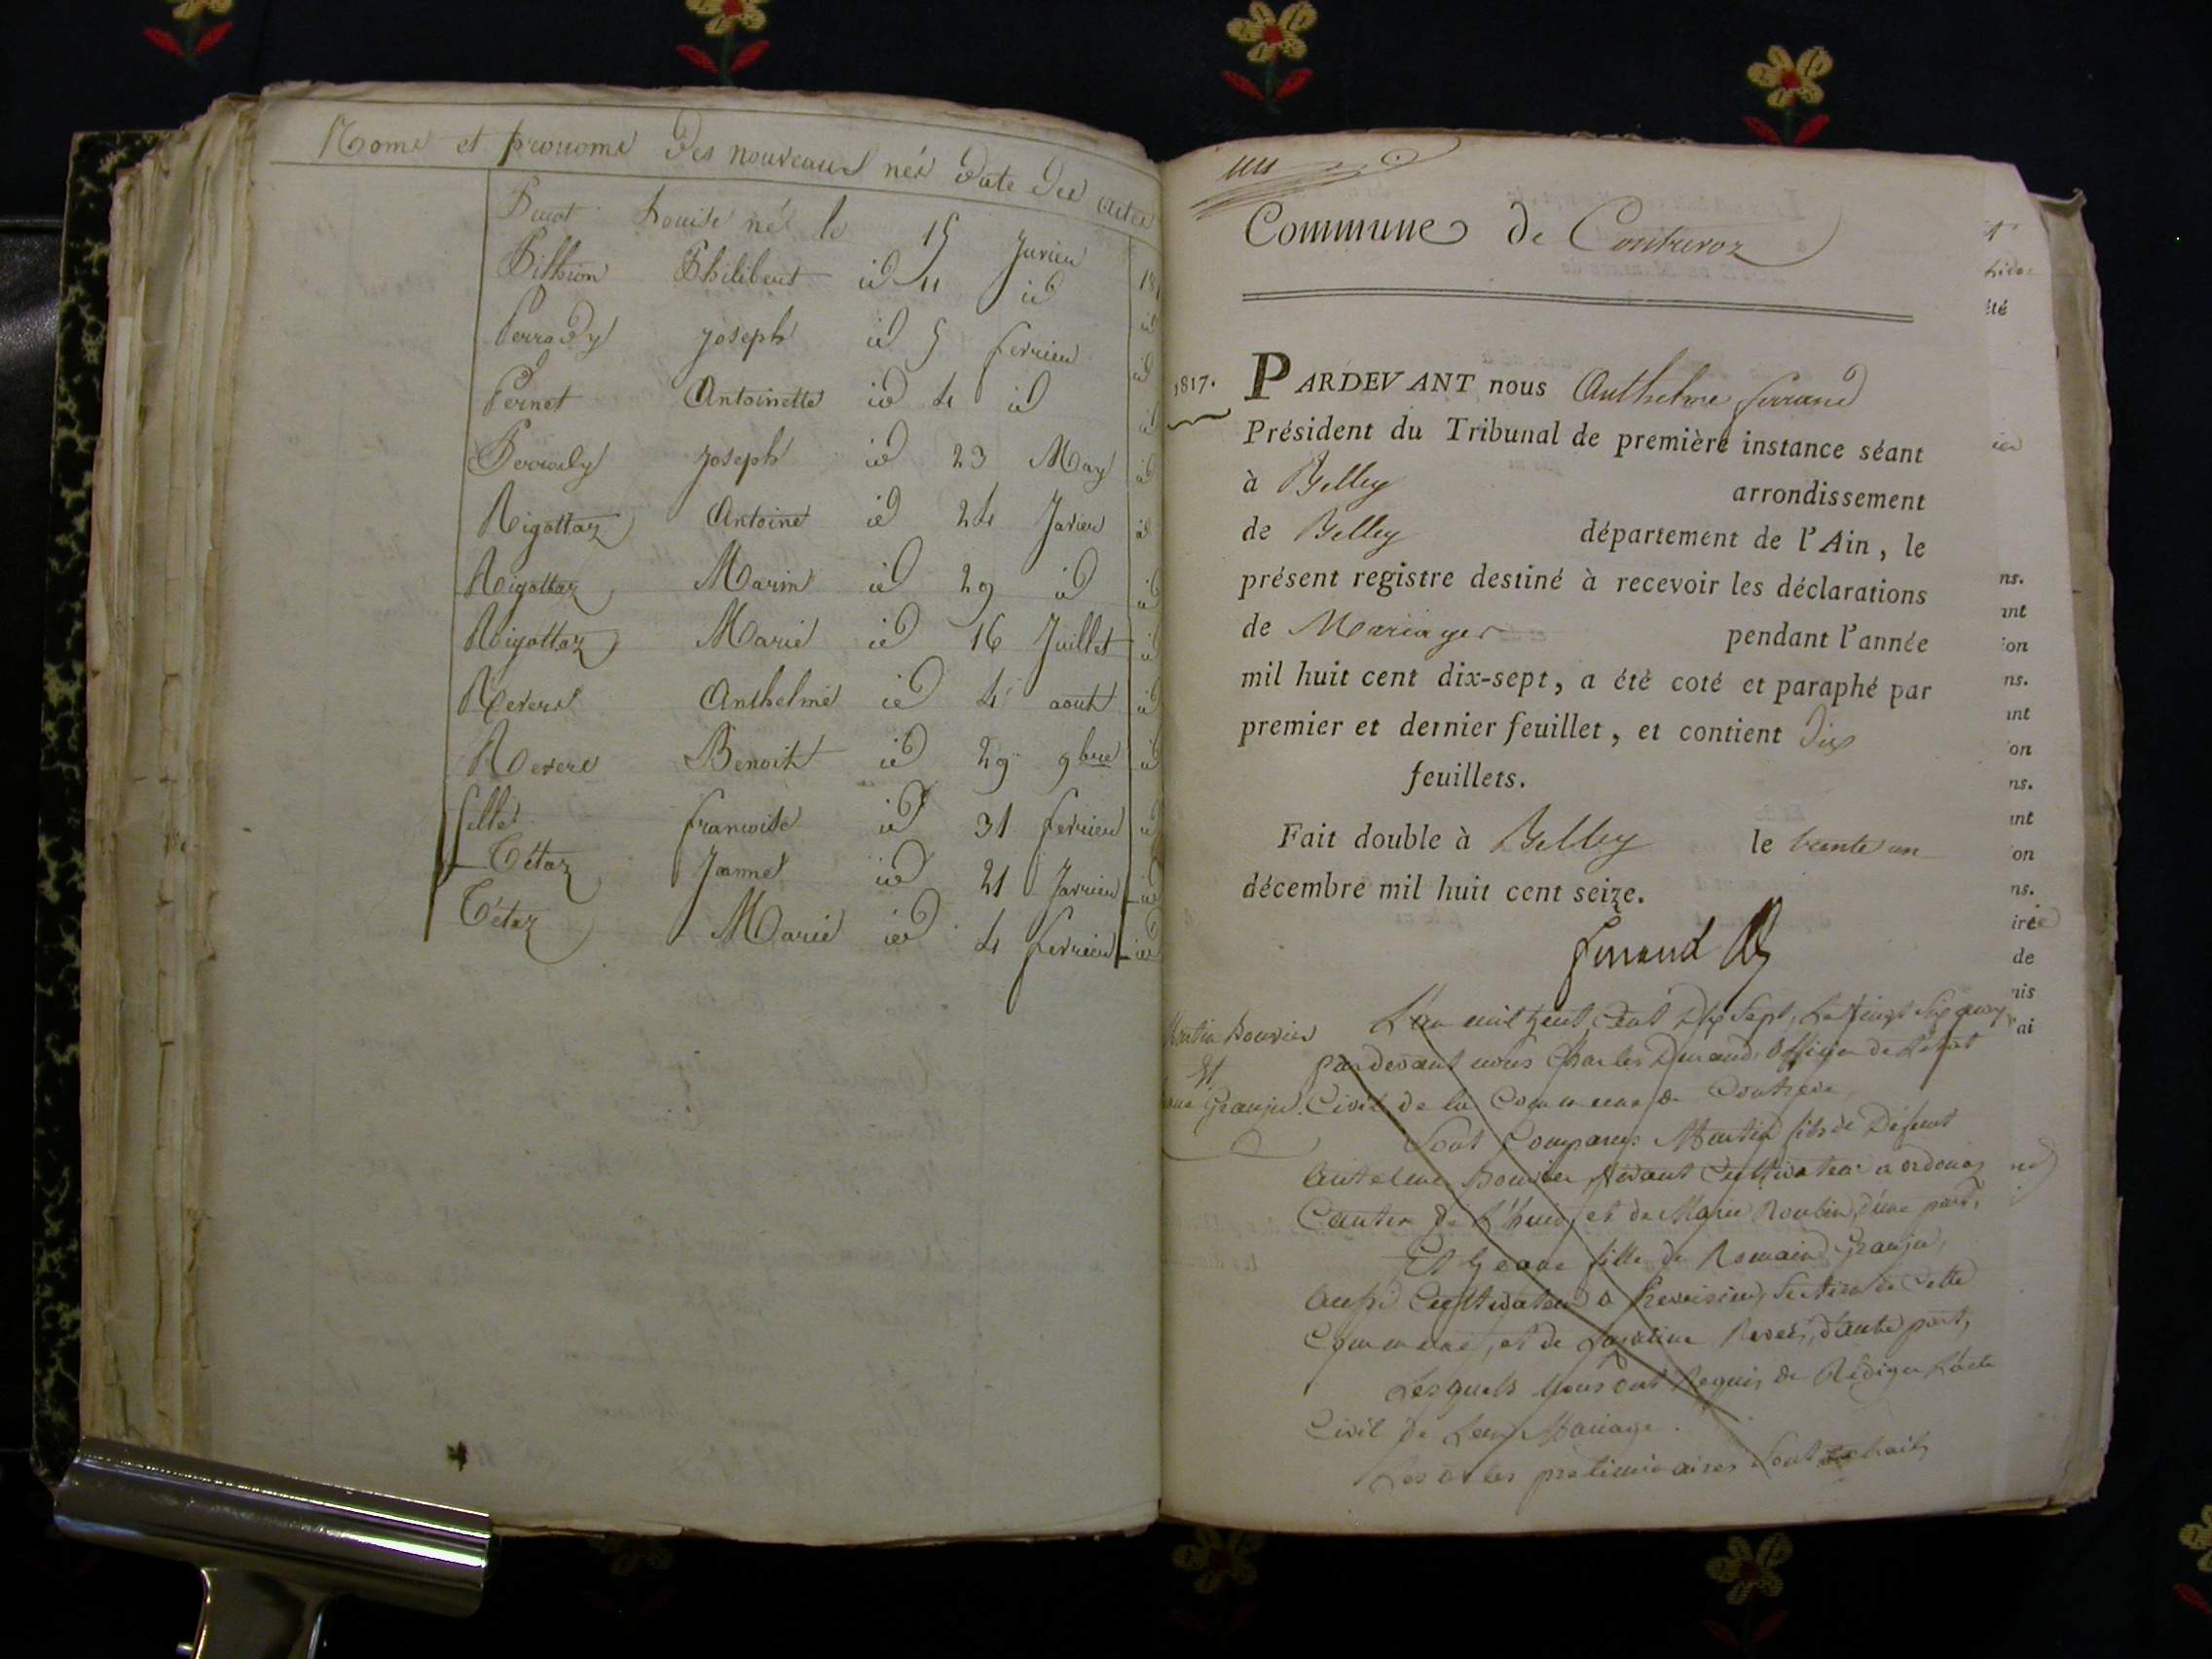 Noms et prenoms des nouveaux nés Date des actes
Louise né le 15 Jenvier 18
Pithion Philibert id 11 id id
Perrody Joseph id 5 fevrier id
Pernet Antoinette id 4 id id
Joseph id 23 May id
Rigottaz Antoine id 24 Janvier id
Rigottaz Marin id 29 id id
Rigottaz Marie id 16 Juillet id
Reverd Anthelme id 4 aout id
Revere Benoit id 29 9bre id
selle francoise id 31 fevrier id
Tétaz Jeanne id 21 Janvier id
Tétaz Marie id 4 fevrier id
Commune de Contrevoz
1817. PARDEVANT nous Anthelme ferrand
Président du Tribunal de première instance séant
à Belley arrondissement
de Belley département de l'Ain, le
présent registre destiné à recevoir les déclarations
de Mariages pendant l'année
mil huit cent dix-sept, a été coté et paraphé par
premier et dernier feuillet, et contient dix
feuillets.
Fait double à Belley le trente un
décembre mil huit cent seize.
ferrand
Martin Bouvier
Et
Granju
L'an mil huit Cent Dix Sept, Le Vingt Six
pardevant nous Charles Durand Officier de L'etat
Civil de la Commune de
Sont Comparus Martin fils de Defunt
Antelme Bouvier Vivant Cultivateur a ordonaz
Canton de L'huis et de Marie Roubin d'une part,
Et Jeane fille de Romain Granju,
Aussi Cultivateur a Section de Cette
Commune, et de d'autre part,
Lesquels Nous Ont Requis de Rédiger L'acte
Civil de Leur Mariage.
Les actes préliminaires Sont
ns.
ant
on
ns.
int
on
ns.
int
on
ns.
de
nis
ai